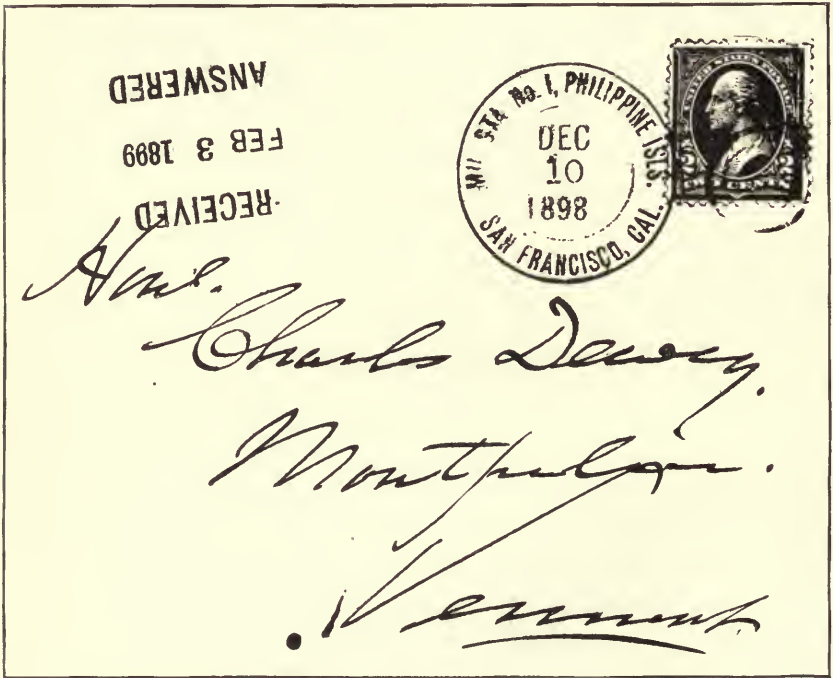 RECEIVED
FEB 3 1899
ANSWERED
MIL STA No. 1, PHILIPPINE ISLS.
DEC
10
1898
SAN FRANCISCO, CAL.
UNITED STATES POSTAGE
Hon.
Charles Dewey.
Montpelier.
Vermont